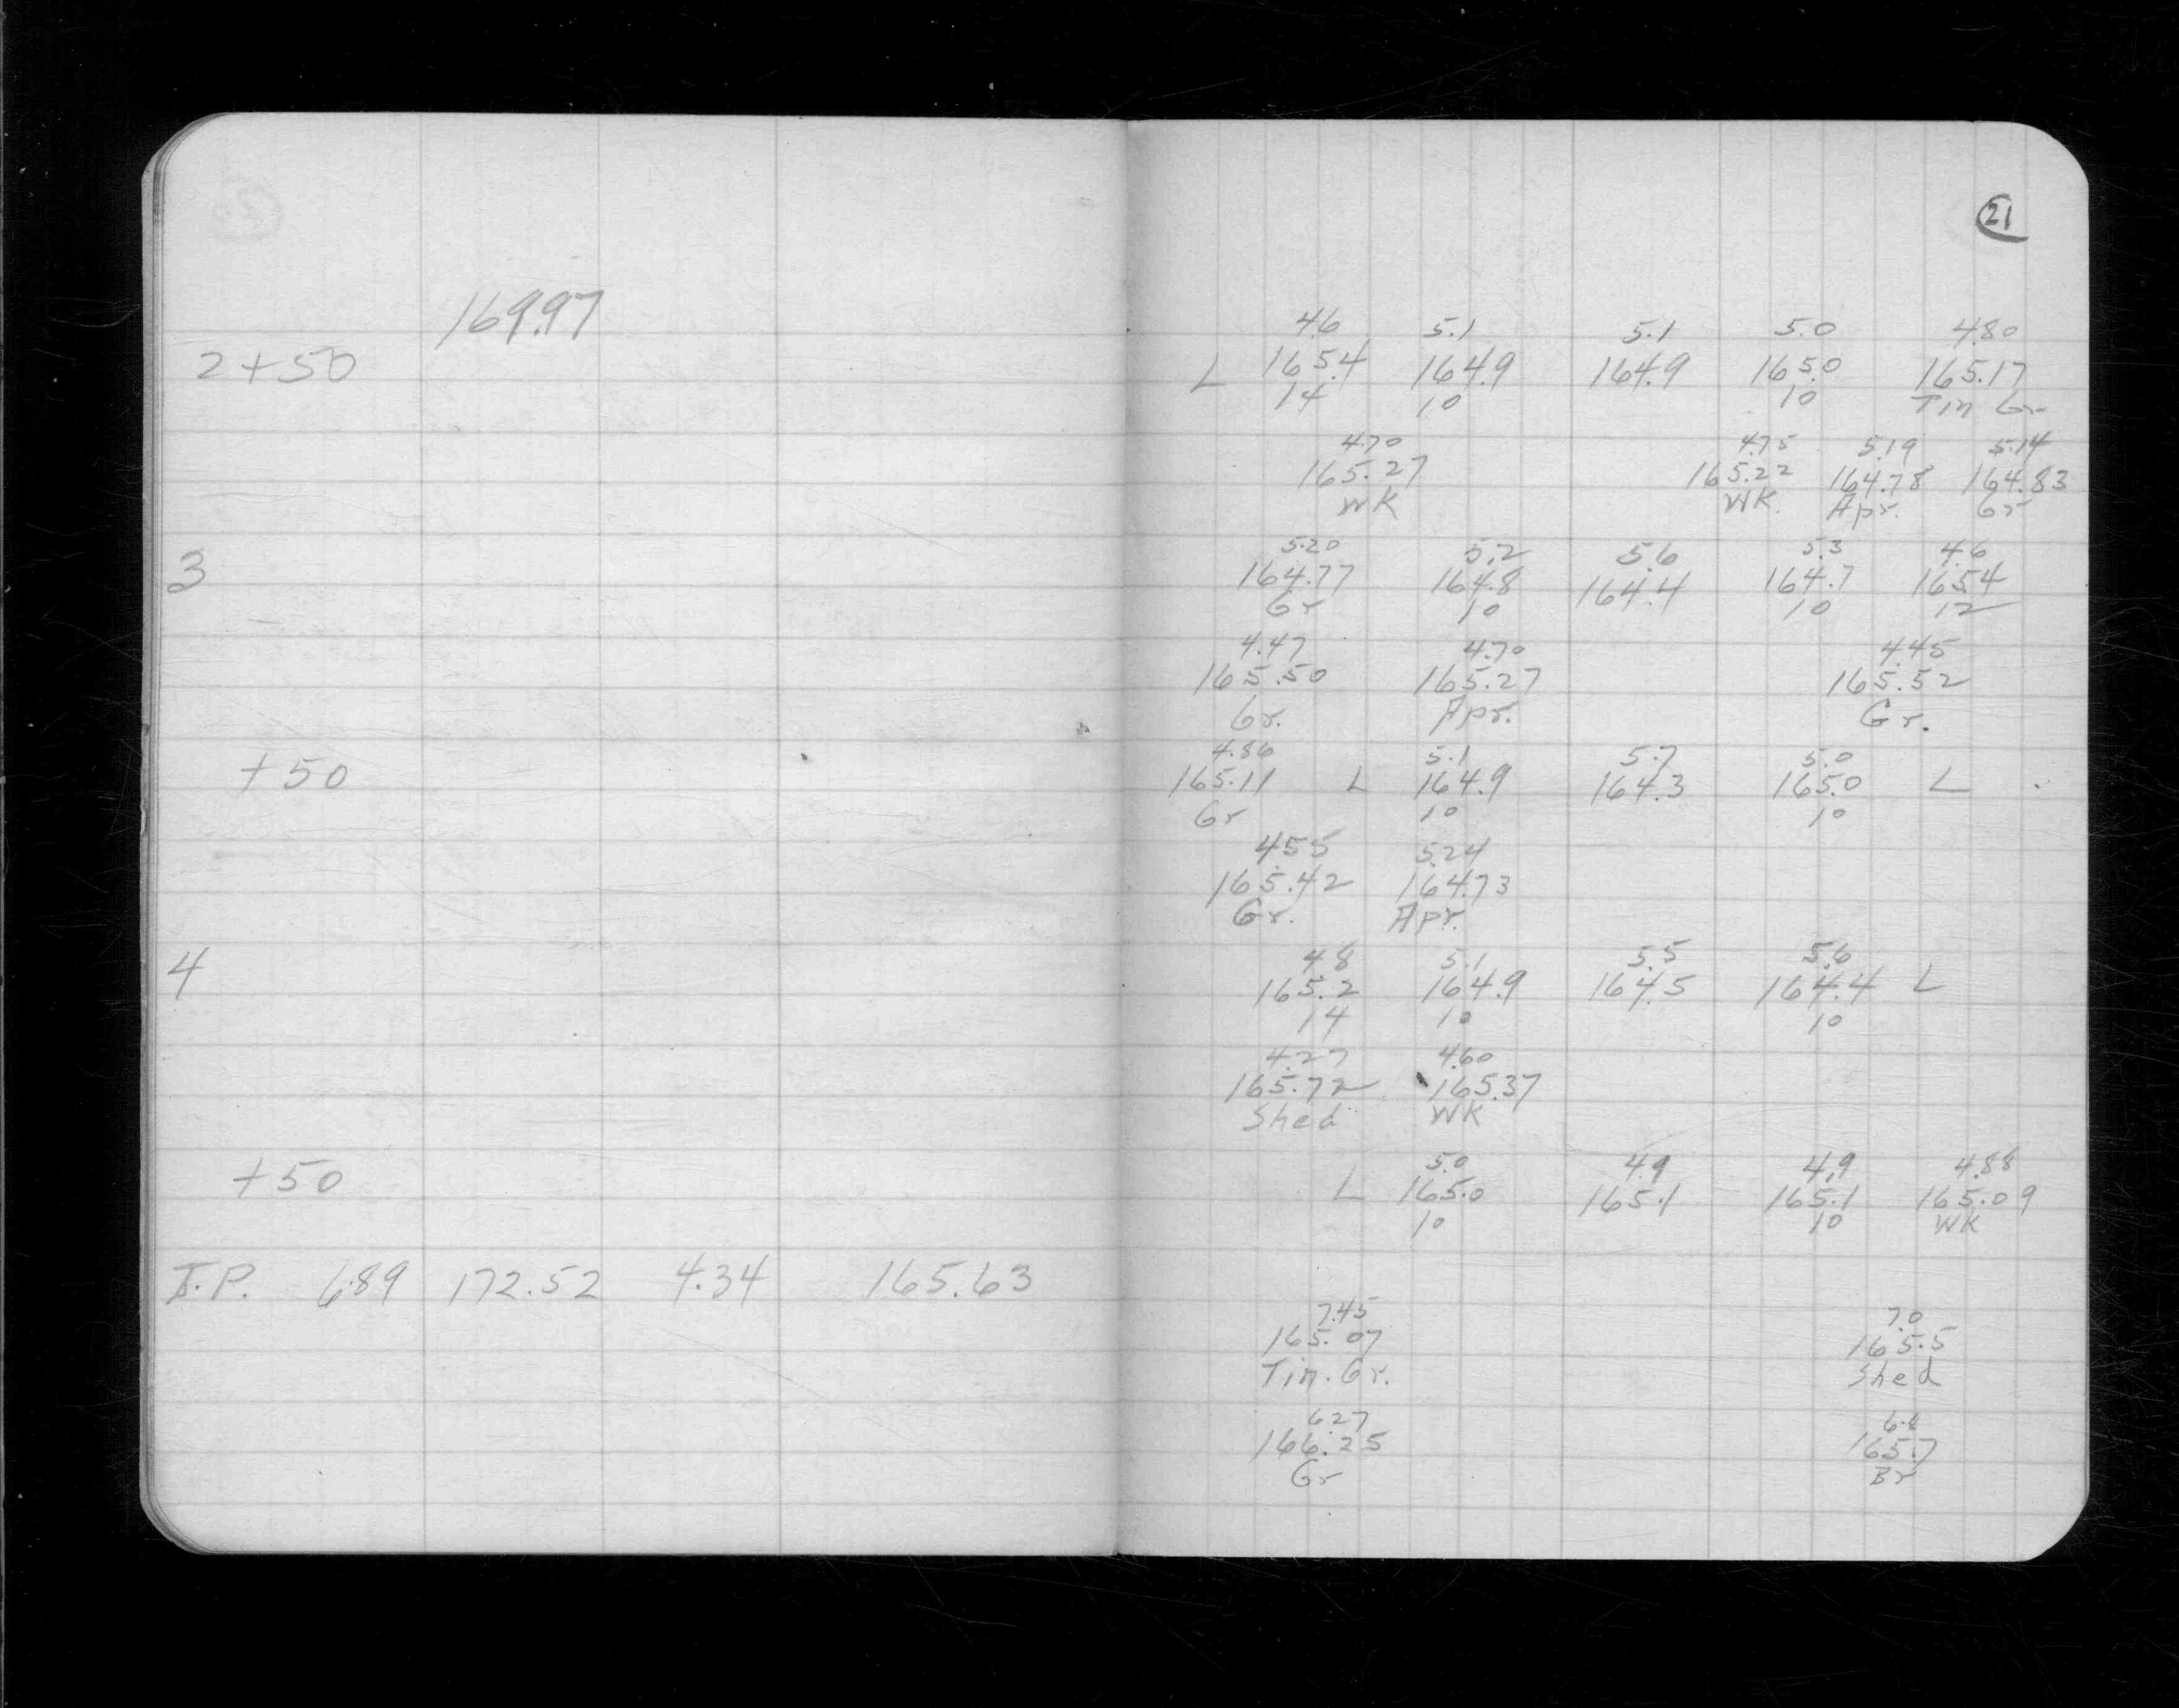 21
169.97
4.6 5.1 5.1 5.0 4.80
2+50 L 165.4 164.9 164.9 165.0 165.17
14 10 10 Tin Gr
4.70 4.75 5.19 5.14
165.27 165.22 164.78 164.83
WK WK. Apr. Gr
5.20 5.2 5.6 5.3 4.6
3 164.77 164.8 164.4 164.7 165.4
Gr 10 10 12
4.47 4.70 4.45
165.50 165.27 165.52
Gr. Apr. Gr.
4.86 5.1 5.7 5.0
+50 165.11 L 164.9 164.3 165.0 L
Gr 10 10
4.55 5.24
165.42 164.73
Gr. Apr.
4.8 5.1 5.5 5.6
4 165.2 164.9 164.5 164.4 L
14 10 10
4.27 4.60
165.72 165.37
Shed WK
5.0 4.9 4.9 4.88
+50 L 165.0 165.1 165.1 165.09
10 10 WK
T.P. 6.89 172.52 4.34 165.63
7.45 7.0
165.07 165.5
Tin. Gr. Shed
6.27 6.8
166.25 165.7
Gr Br